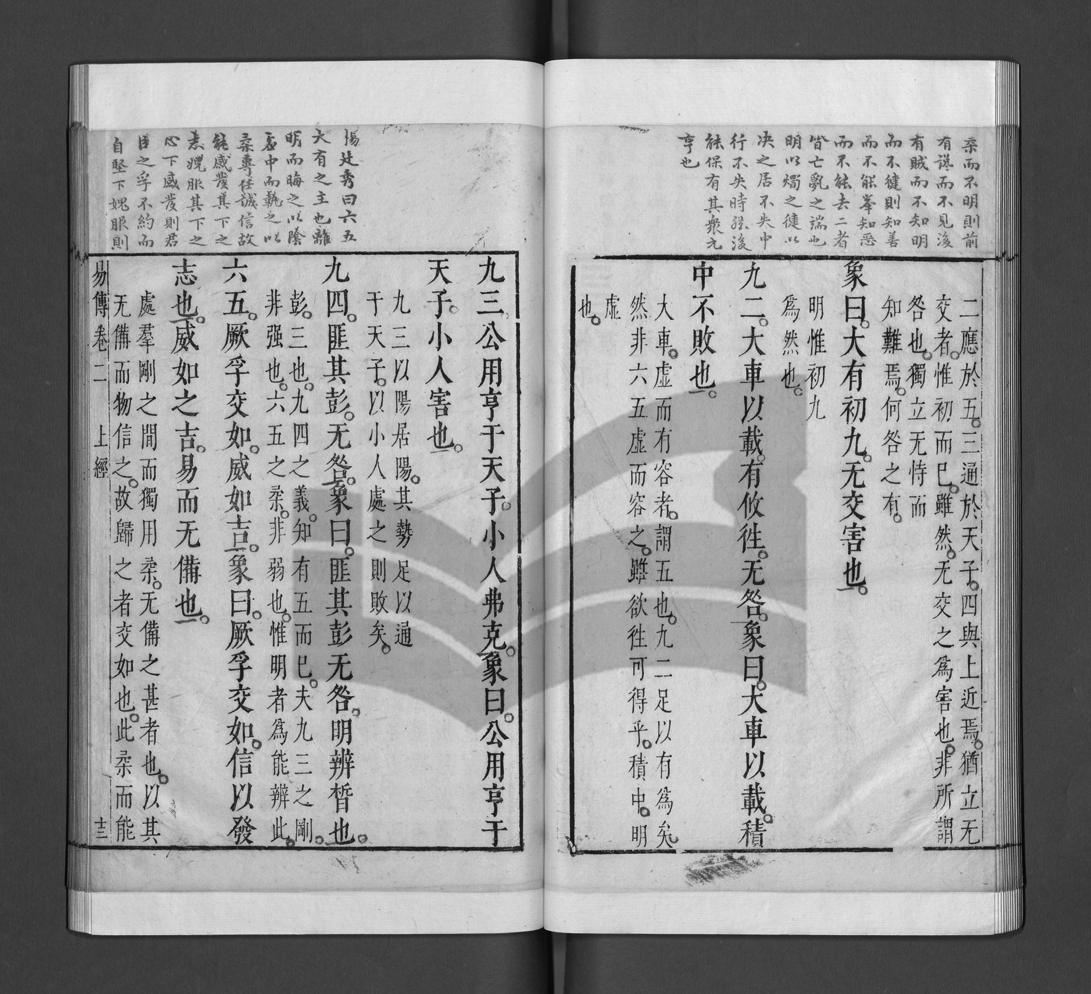 柔而不明則前
有讒而不見後
有賊而不知明
而不健則知善
而不能舉知惡
而不能去二者
皆亡亂之端也
明以燭之健以
决之居不失中
行不失時然後
能保有其衆元
亨也
二應於五三通於天子四與上近焉獨立无
交者惟初而已雖然无交之爲害也非所謂
咎也獨立无恃而
知難焉何咎之有
象曰大有初九无交害也
明惟初九
爲然也
九二大車以載有攸往无咎象曰大車以載積
中不敗也
大車虛而有容者謂五也九二足以有爲矣
然非六五虛而容之雖欲往可得乎積中明
虛
也
楊廷秀曰六五
大有之主也離
明而晦之以陰
居中而執之以
柔專任誠信故
能感發其下之
志媿服其下之
心下感發則君
臣之孚不約而
自堅下媿服則
九三公用亨于天子小人弗克象曰公用亨于
天子小人害也
九三以陽居陽其勢足以通
于天子以小人處之則敗矣
九四匪其彭无咎象曰匪其彭无咎明辨晳也
彭三也九四之義知有五而已夫九三之剛
非强也六五之柔非弱也惟明者爲能辨此
六五厥孚交如威如吉象曰厥孚交如信以發
志也威如之吉易而无備也
處羣剛之間而獨用柔无備之甚者也以其
无備而物信之故歸之者交如也此柔而能
易傳卷二 上經 十三